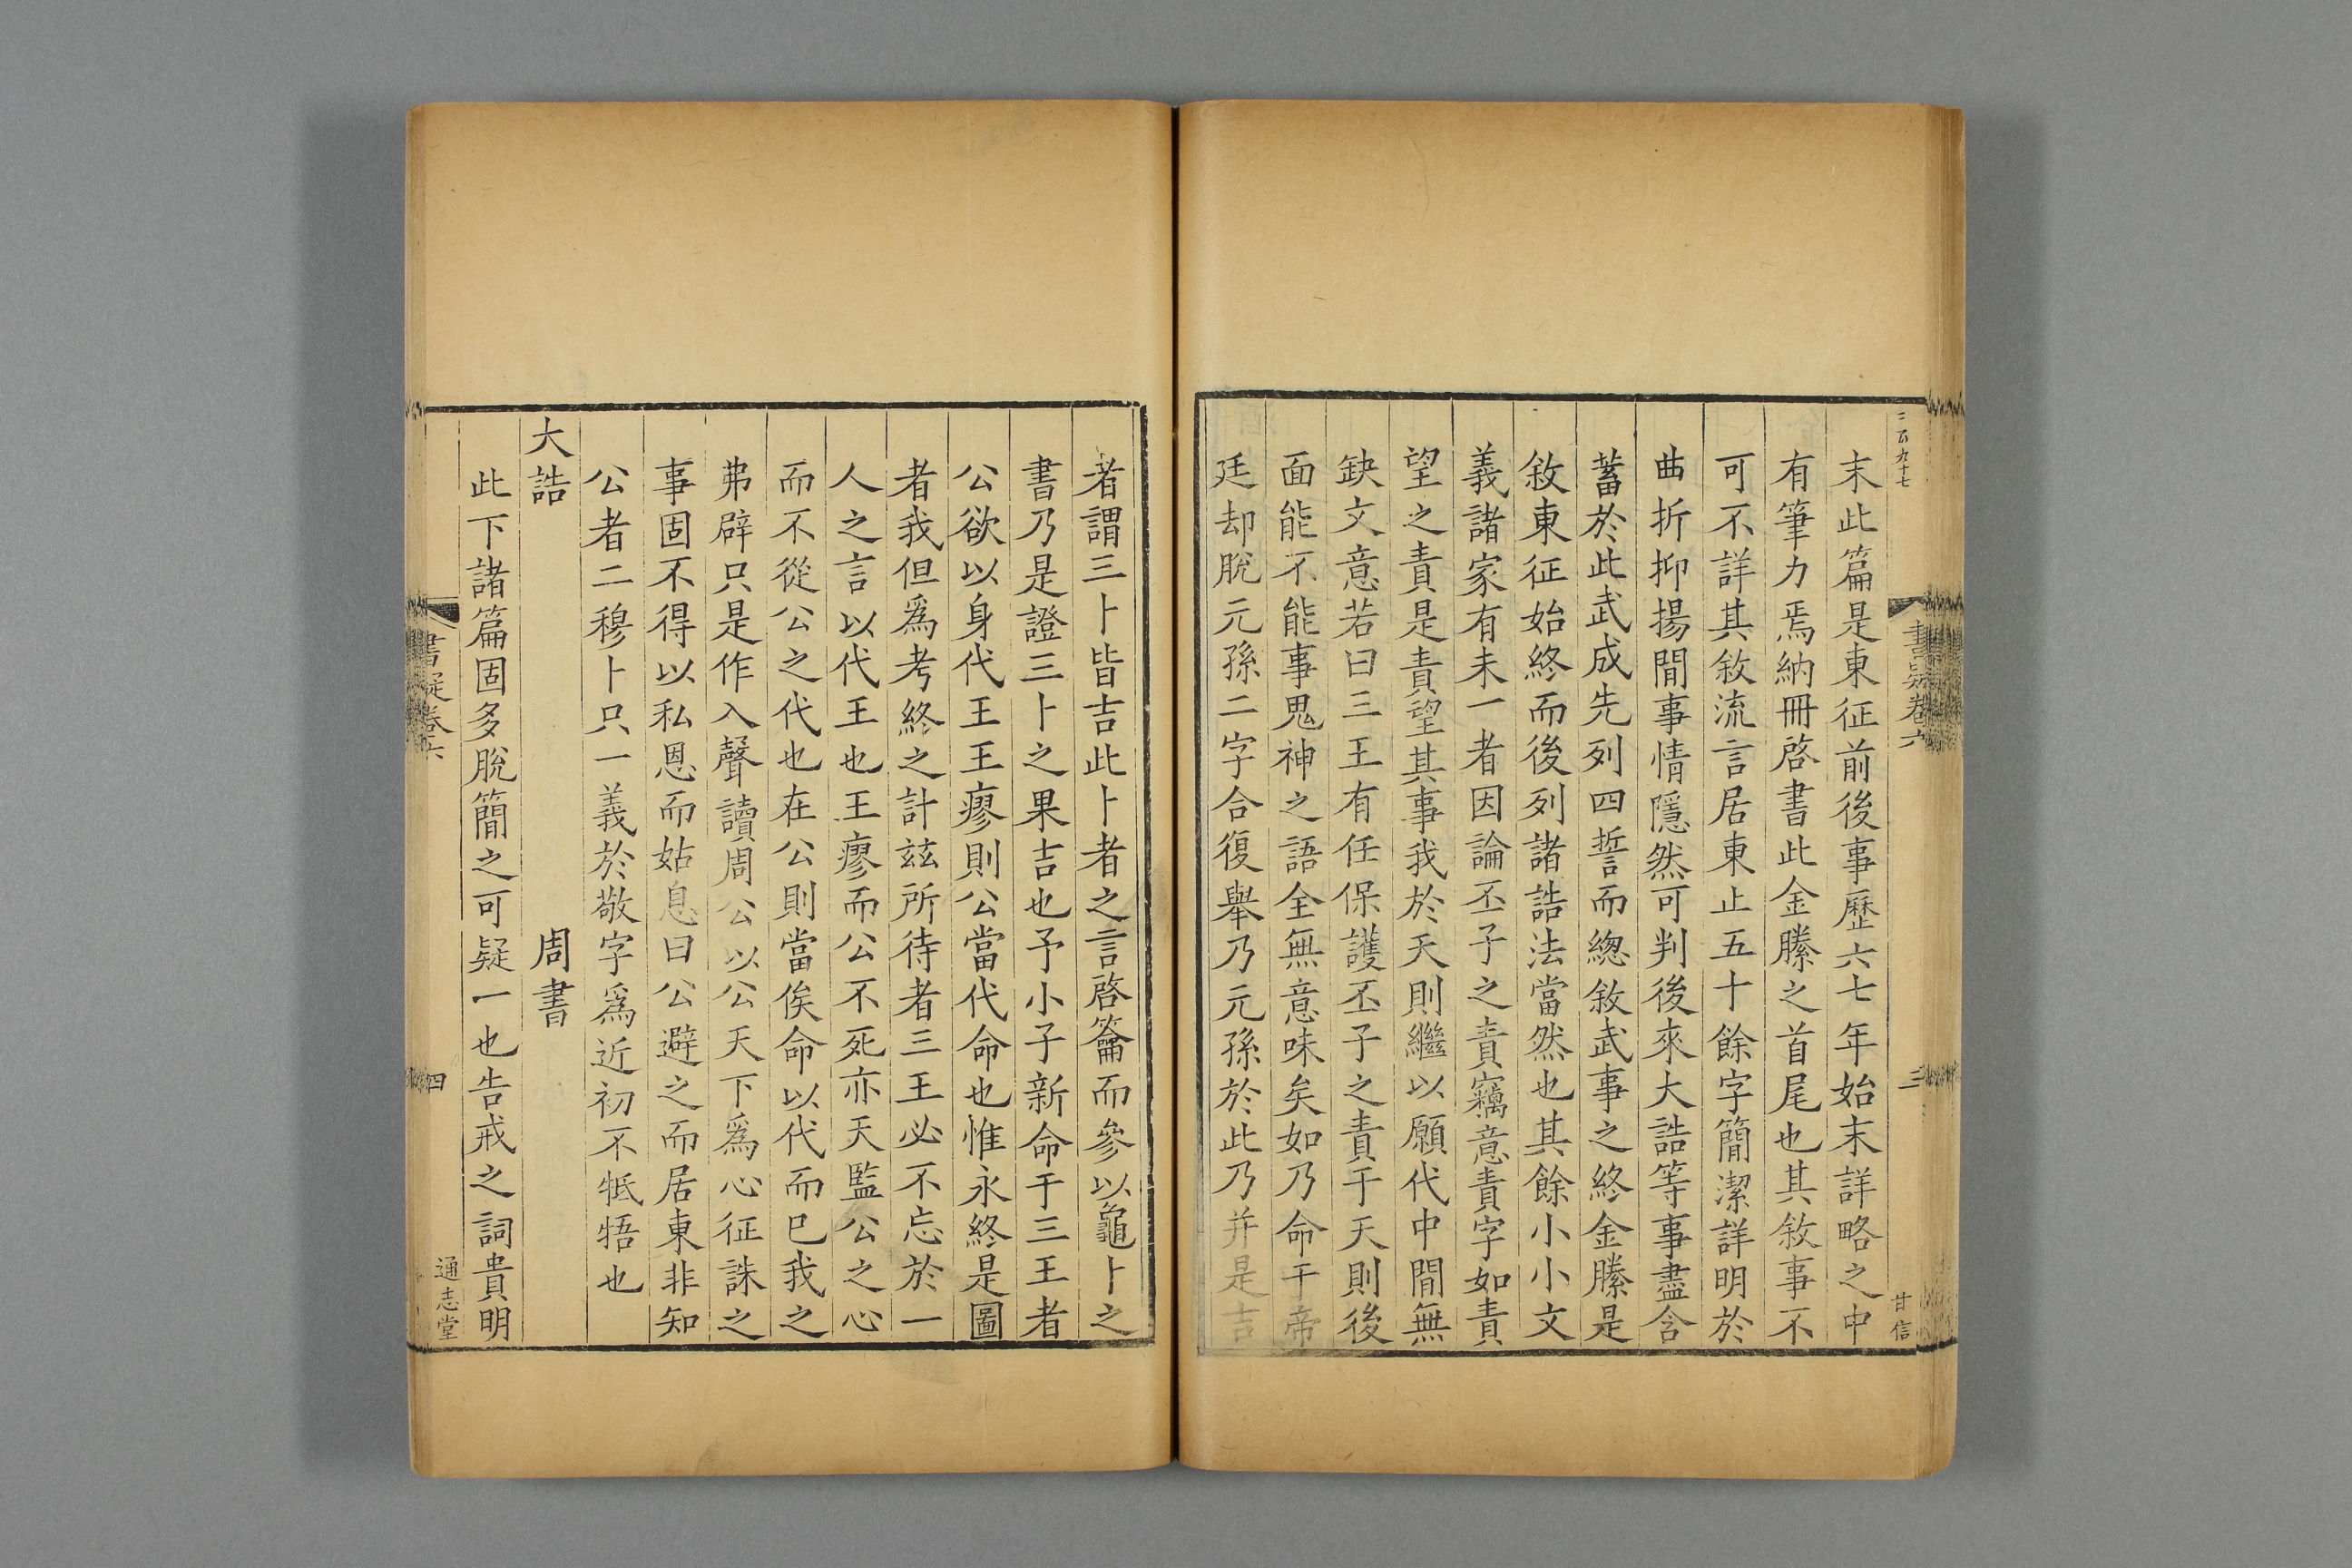 書疑卷六
三
甘信
末此篇是東征前後事歷六七年始末詳略之中
有筆力焉納冊啓書此金縢之首尾也其敘事不
可不詳其敘流言居東止五十餘字簡潔詳明於
曲折抑揚間事情隱然可判後來大誥等事盡含
蓄於此武成先列四誓而緫敘武事之終金縢是
敘東征始終而後列諸誥法當然也其餘小小文
義諸家有未一者因論丕子之責竊意責字如責
望之責是責望其事我於天則繼以願代中間無
缺文意若曰三王有任保護丕子之責于天則後
面能不能事鬼神之語全無意味矣如乃命于帝
廷却脫元孫二字合復舉乃元孫於此乃并是吉
者謂三卜皆吉此卜者之言啓籥而參以龜卜之
書乃是證三卜之果吉也予小子新命于三王者
公欲以身代王王瘳則公當代命也惟永終是圖
者我但爲考終之計玆所待者三王必不忘於一
人之言以代王也王瘳而公不死亦天監公之心
而不從公之代也在公則當俟命以代而已我之
弗辟只是作入聲讀周公以公天下爲心征誅之
事固不得以私恩而姑息曰公避之而居東非知
公者二穆卜只一義於敬字爲近初不牴牾也
大誥 周書
此下諸篇固多脫簡之可疑一也告戒之詞貴明
書疑卷六
四
通志堂